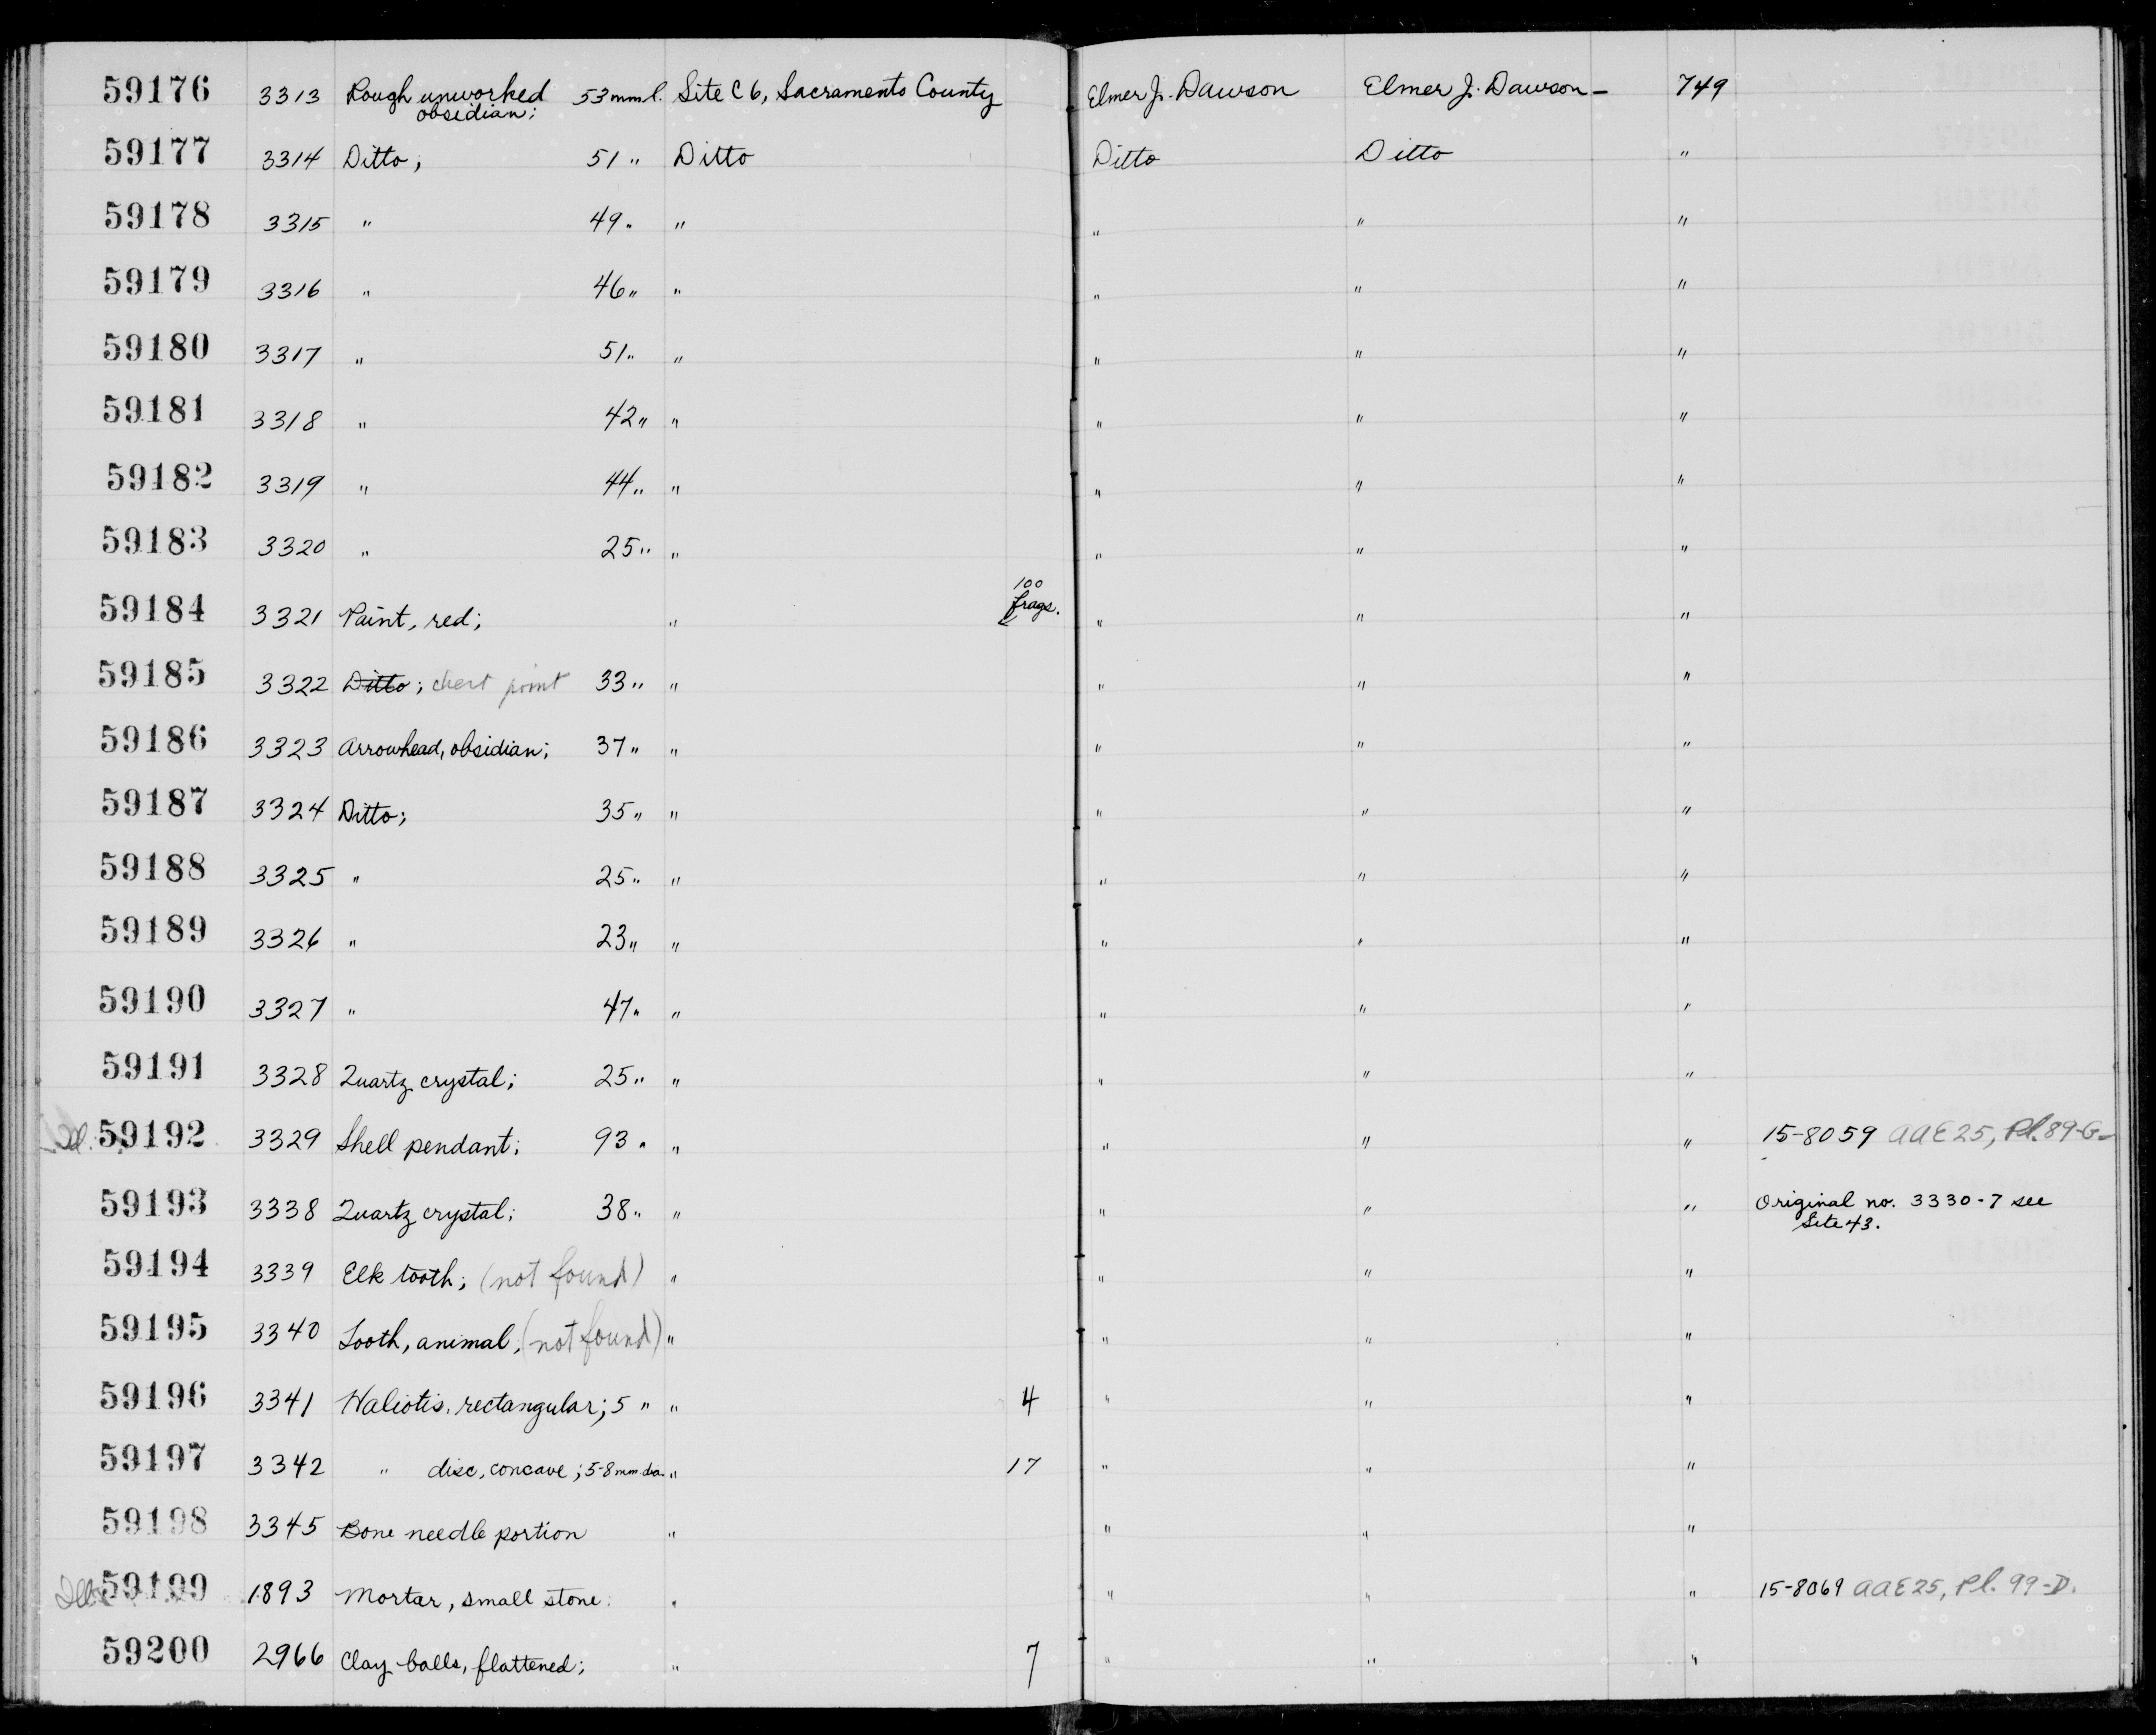 59176 3313 Rough unworked 53 mm l. Site C 6, Sacramento County Elmer J. Dawson Elmer J. Dawson — 749
obsidian;
59177 3314 Ditto; 51 " Ditto Ditto Ditto "
59178 3315 " 49 " " " " "
59179 3316 " 46 " " " " "
59180 3317 " 51 " " " " "
59181 3318 " 42 " " " " "
59182 3319 " 44 " " " " "
59183 3320 " 25 " " " " "
100
59184 3321 Paint, red; " frags. " " "
59185 3322 Ditto; chert point 33 " " " " "
59186 3323 Arrowhead, obsidian; 37 " " " " "
59187 3324 Ditto; 35 " " " " "
59188 3325 " 25 " " " " "
59189 3326 " 23 " " " " "
59190 3327 " 47 " " " " "
59191 3328 Quartz crystal; 25 " " " " "
59192 3329 Shell pendant; 93 " " " " " 15-8059 AAE25, Pl. 89-G
59193 3338 Quartz crystal; 38 " " " " " Original no. 3330-7 see
Site 43.
59194 3339 Elk tooth; (not found) " " " "
59195 3340 Tooth, animal, (not found) " " " "
59196 3341 Haliotis, rectangular; 5 " " 4 " " "
59197 3342 " disc, concave; 5-8 mm. dia. " 17 " " "
59198 3345 Bone needle portion " " " "
59199 1893 Mortar, small stone. " " " " 15-8069 AAE25, Pl. 99-D.
59200 2966 Clay balls, flattened; " 7 " " "